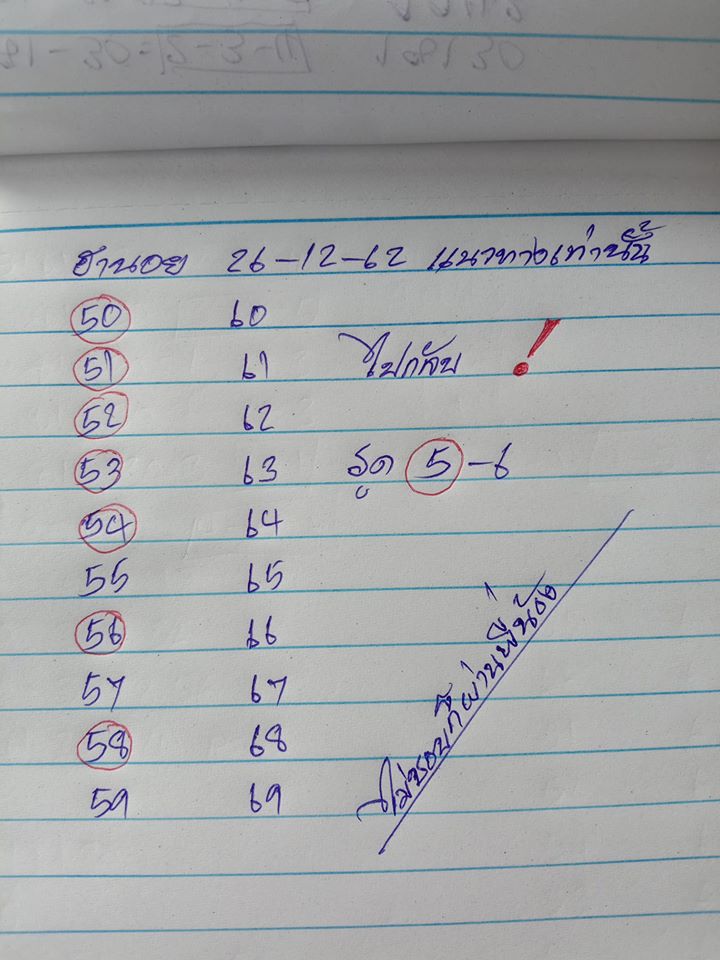 ฮานอย 26-12-62 แนวทางเท่านั้น
50 60
51 61 ไปกลับ !
52 62
53 63 รูด 5-6
54 64
55 65
56 66
57 67
58 68
59 69
ไม่ชอบก็ผ่านพี่น้อง